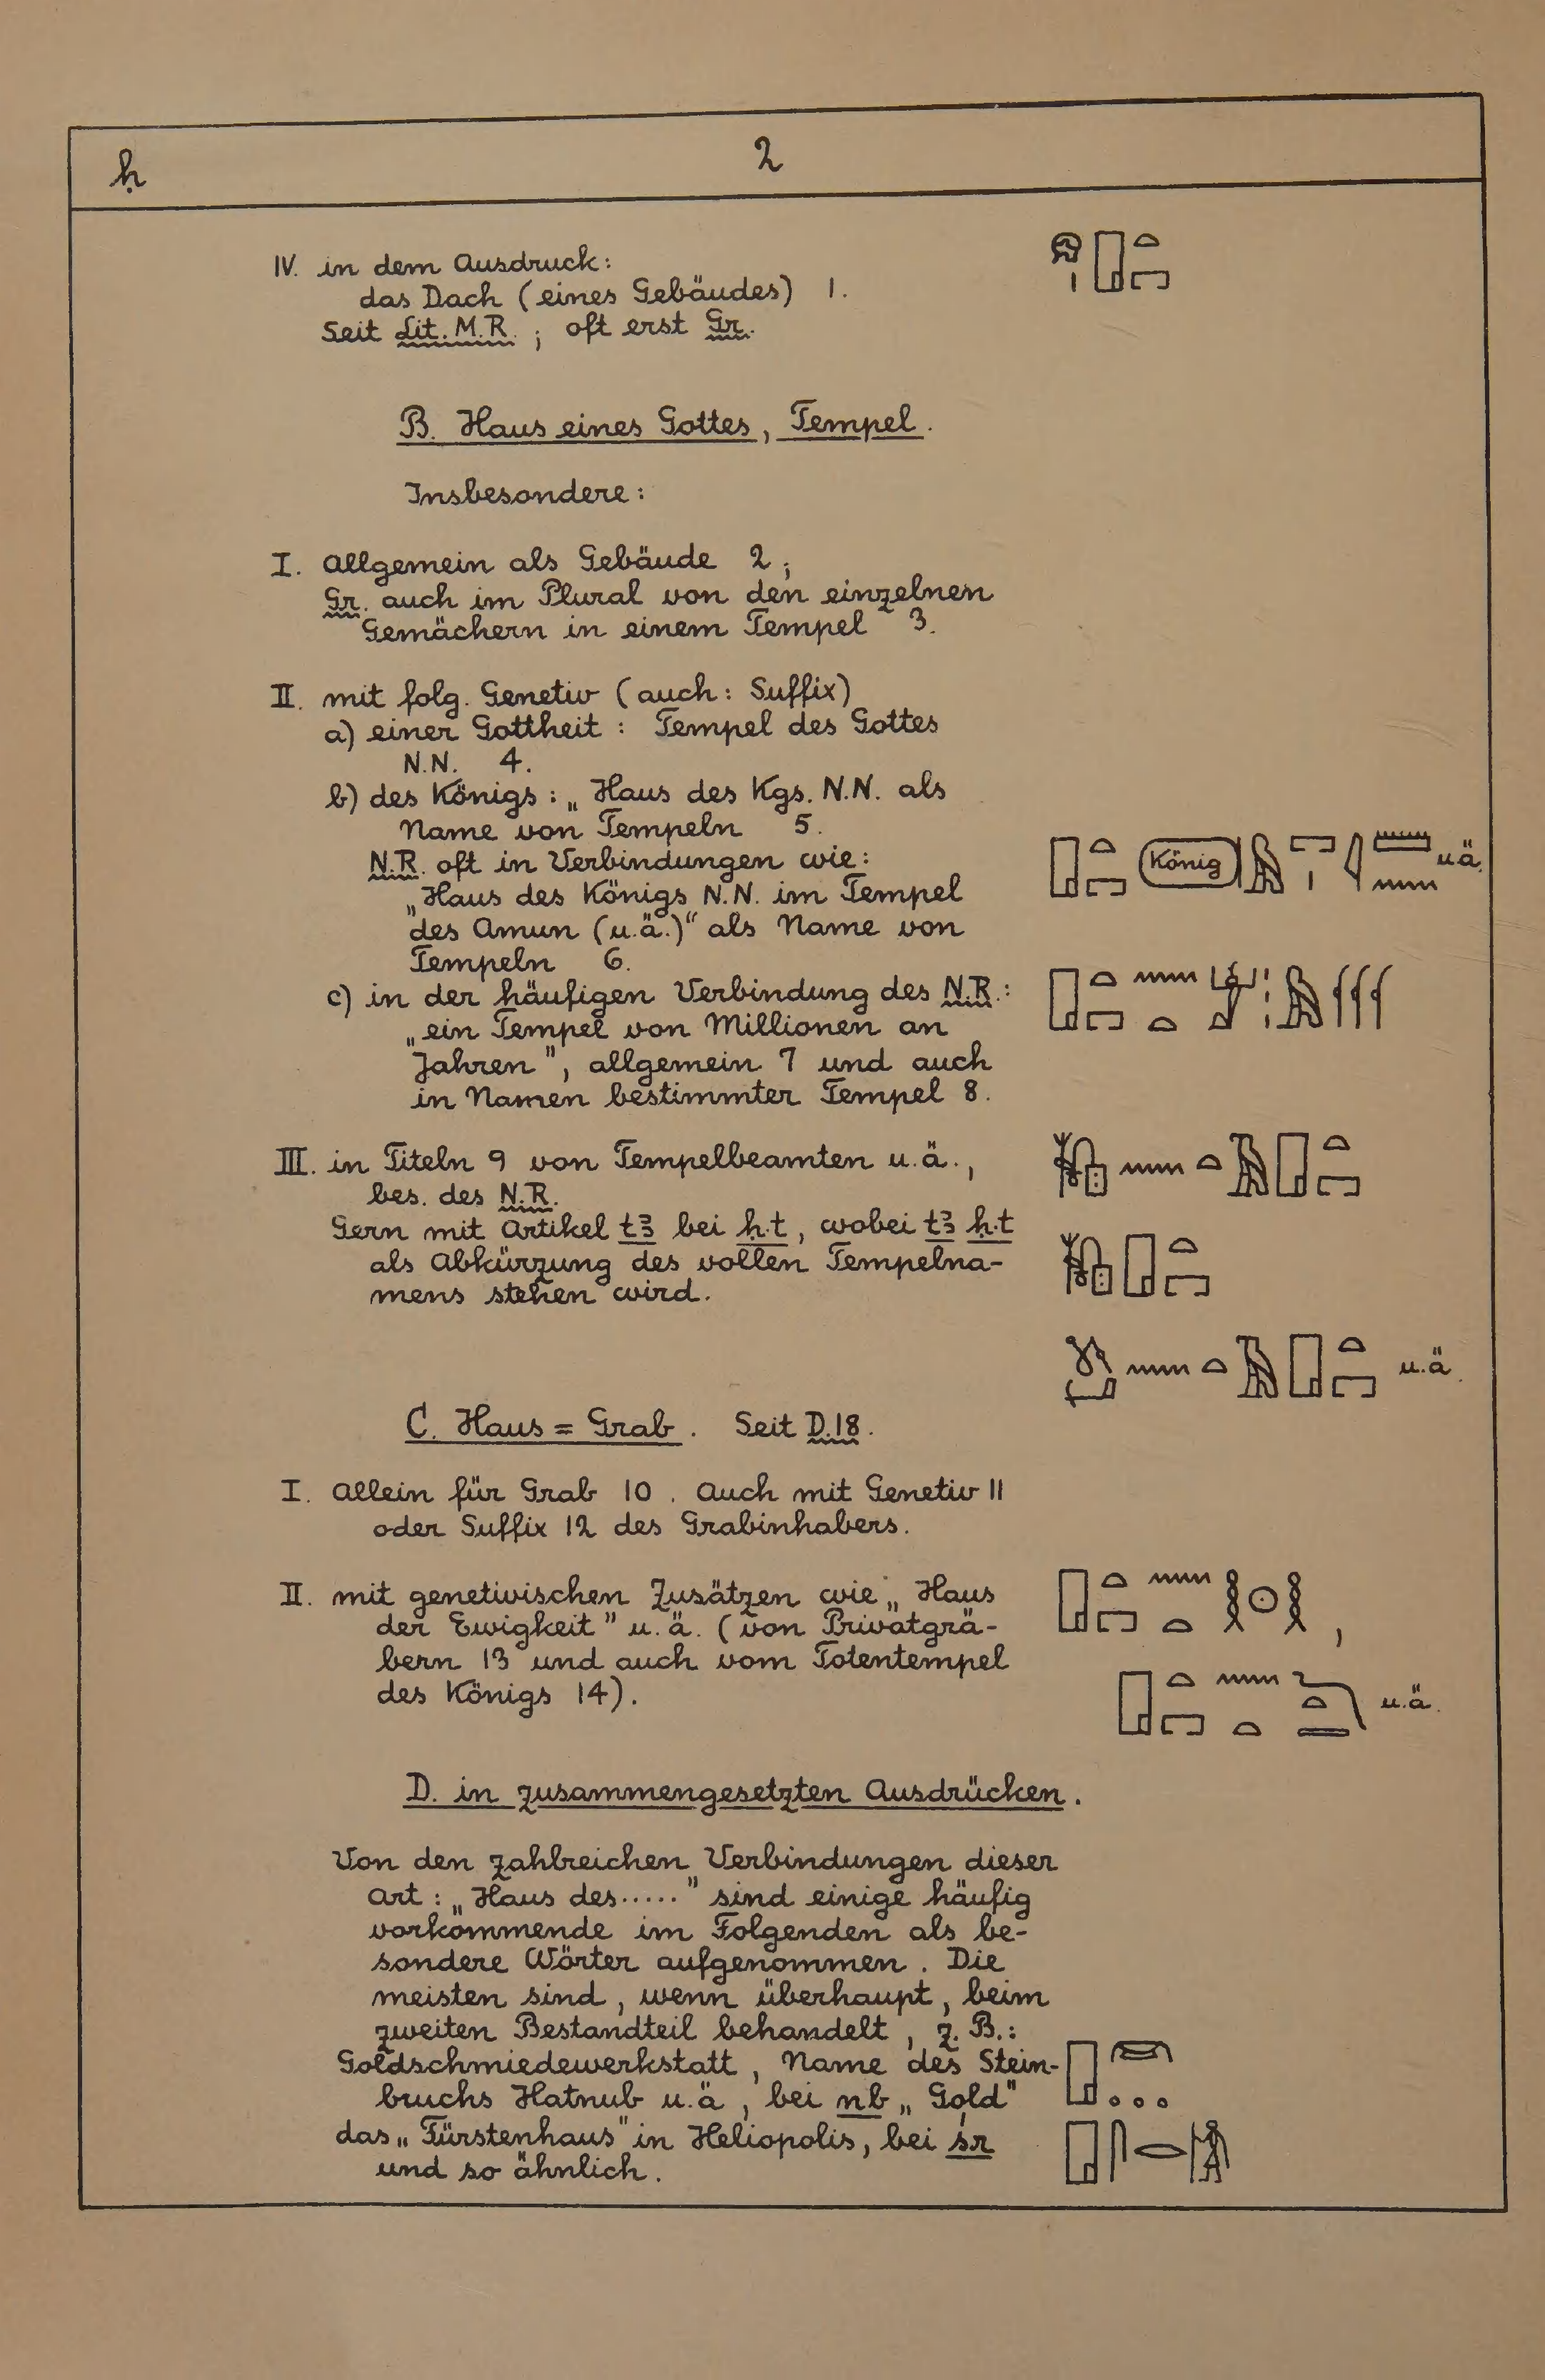 ḥ
2
IV. in dem Ausdruck:
das Dach (eines Gebäudes) 1.
Seit Lit. M.R.; oft erst Gr.
B. Haus eines Gottes, Tempel.
Insbesondere:
I. Allgemein als Gebäude 2;
Gr. auch im Plural von den einzelnen
Gemächern in einem Tempel 3.
II. mit folg. Genetiv (auch: Suffix)
a) einer Gottheit: Tempel des Gottes
N.N. 4.
b) des Königs: „Haus des Kgs. N.N. als
Name von Tempeln 5.
N.R. oft in Verbindungen wie:
König u.ä.
„Haus des Königs N.N. im Tempel
des Amun (u.ä.)“ als Name von
Tempeln 6.
c) in der häufigen Verbindung des N.R.:
„ein Tempel von Millionen an
Jahren", allgemein 7 und auch
in Namen bestimmter Tempel 8.
III. in Titeln 9 von Tempelbeamten u.ä.,
bes. des N.R.
Gern mit Artikel tꜣ bei ḥ.t, wobei tꜣ ḥ.t
als Abkürzung des vollen Tempelna-
mens stehen wird.
u.ä.
C. Haus = Grab. Seit D.18.
I. Allein für Grab 10. Auch mit Genetiv 11
oder Suffix 12 des Grabinhabers.
II. mit genetivischen Zusätzen wie „Haus
der Ewigkeit" u.ä. (von Privatgrä-
bern 13 und auch vom Totentempel
des Königs 14).
u.ä.
D. in zusammengesetzten Ausdrücken.
Von den zahlreichen Verbindungen dieser
Art: „Haus des....." sind einige häufig
vorkommende im Folgenden als be-
sondere Wörter aufgenommen. Die
meisten sind, wenn überhaupt, beim
zweiten Bestandteil behandelt, z.B.:
Goldschmiedewerkstatt, Name des Stein-
bruchs Hatnub u.ä, bei nb „Gold"
das „Fürstenhaus" in Heliopolis, bei śr
und so ähnlich.